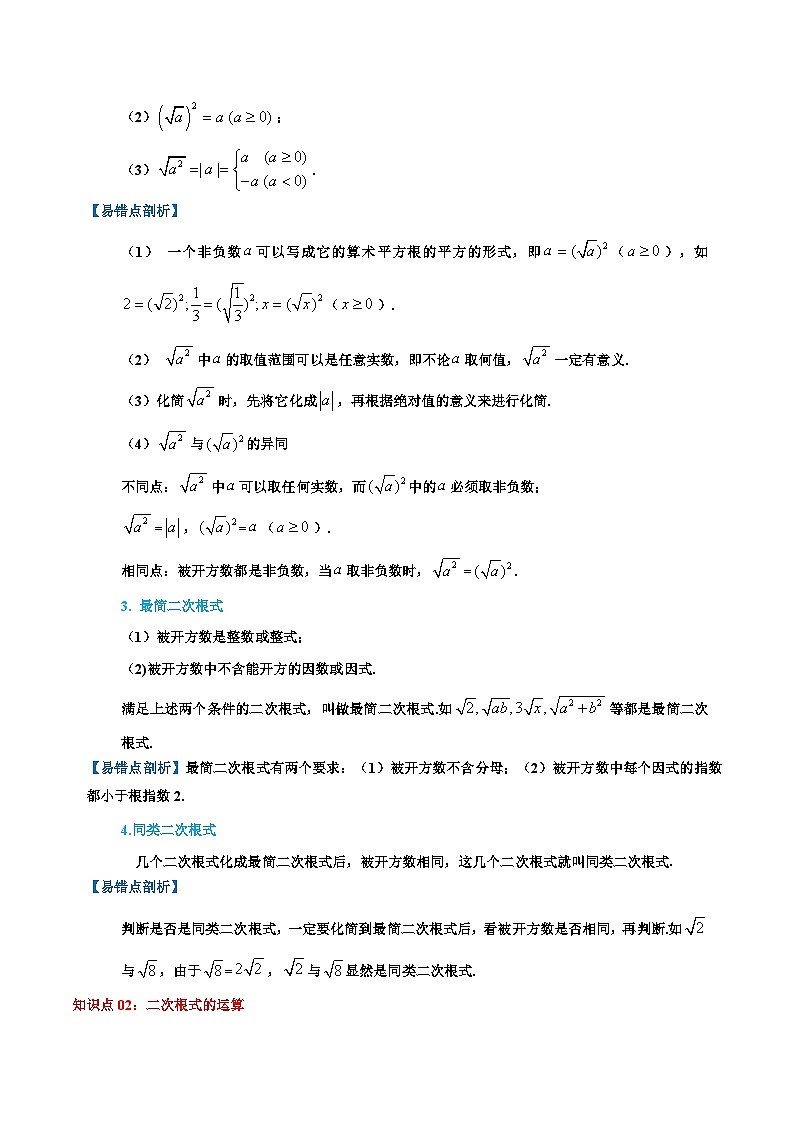 （2）(√a)² = a (a ≥ 0)；
（3）√a² =| a |= { a (a ≥ 0) −a (a < 0) .
【易错点剖析】
（1） 一个非负数a可以写成它的算术平方根的平方的形式，即a = (√a)²（a ≥ 0），如
2 = (√2)²; 1/3 = (√(1/3))²; x = (√x)²（x ≥ 0）.
（2） √a² 中a的取值范围可以是任意实数，即不论a取何值，√a² 一定有意义.
（3）化简√a² 时，先将它化成|a|，再根据绝对值的意义来进行化简.
（4）√a² 与(√a)²的异同
不同点：√a² 中a可以取任何实数，而(√a)²中的a必须取非负数；
√a² = |a|，(√a)² = a（a ≥ 0）.
相同点：被开方数都是非负数，当a取非负数时，√a² = (√a)².
3. 最简二次根式
（1）被开方数是整数或整式；
（2)被开方数中不含能开方的因数或因式.
满足上述两个条件的二次根式，叫做最简二次根式.如√2, √ab, 3√x, √(a² + b²) 等都是最简二次
根式.
【易错点剖析】最简二次根式有两个要求：（1）被开方数不含分母；（2）被开方数中每个因式的指数
都小于根指数 2.
4.同类二次根式
几个二次根式化成最简二次根式后，被开方数相同，这几个二次根式就叫同类二次根式.
【易错点剖析】
判断是否是同类二次根式，一定要化简到最简二次根式后，看被开方数是否相同，再判断.如√2
与√8，由于√8 = 2√2，√2与√8显然是同类二次根式.
知识点 02：二次根式的运算